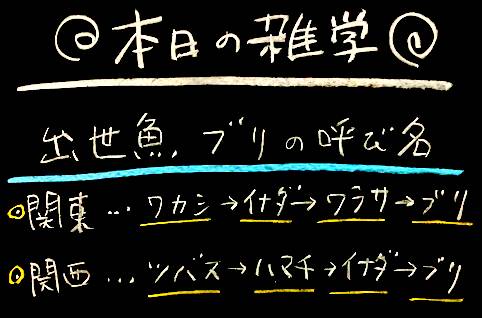 @本日の雑学@
出世魚,ブリの呼び名
◎関東…ワカシ→イナダ→ワラサ→ブリ
◎関西…ツバス→ハマチ→イナダ→ブリ